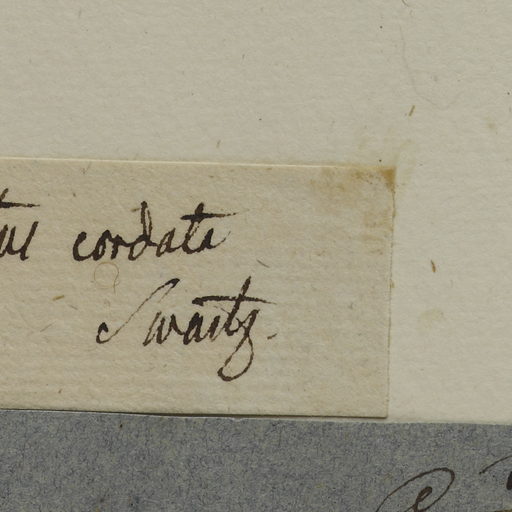 cordata
Swartz.